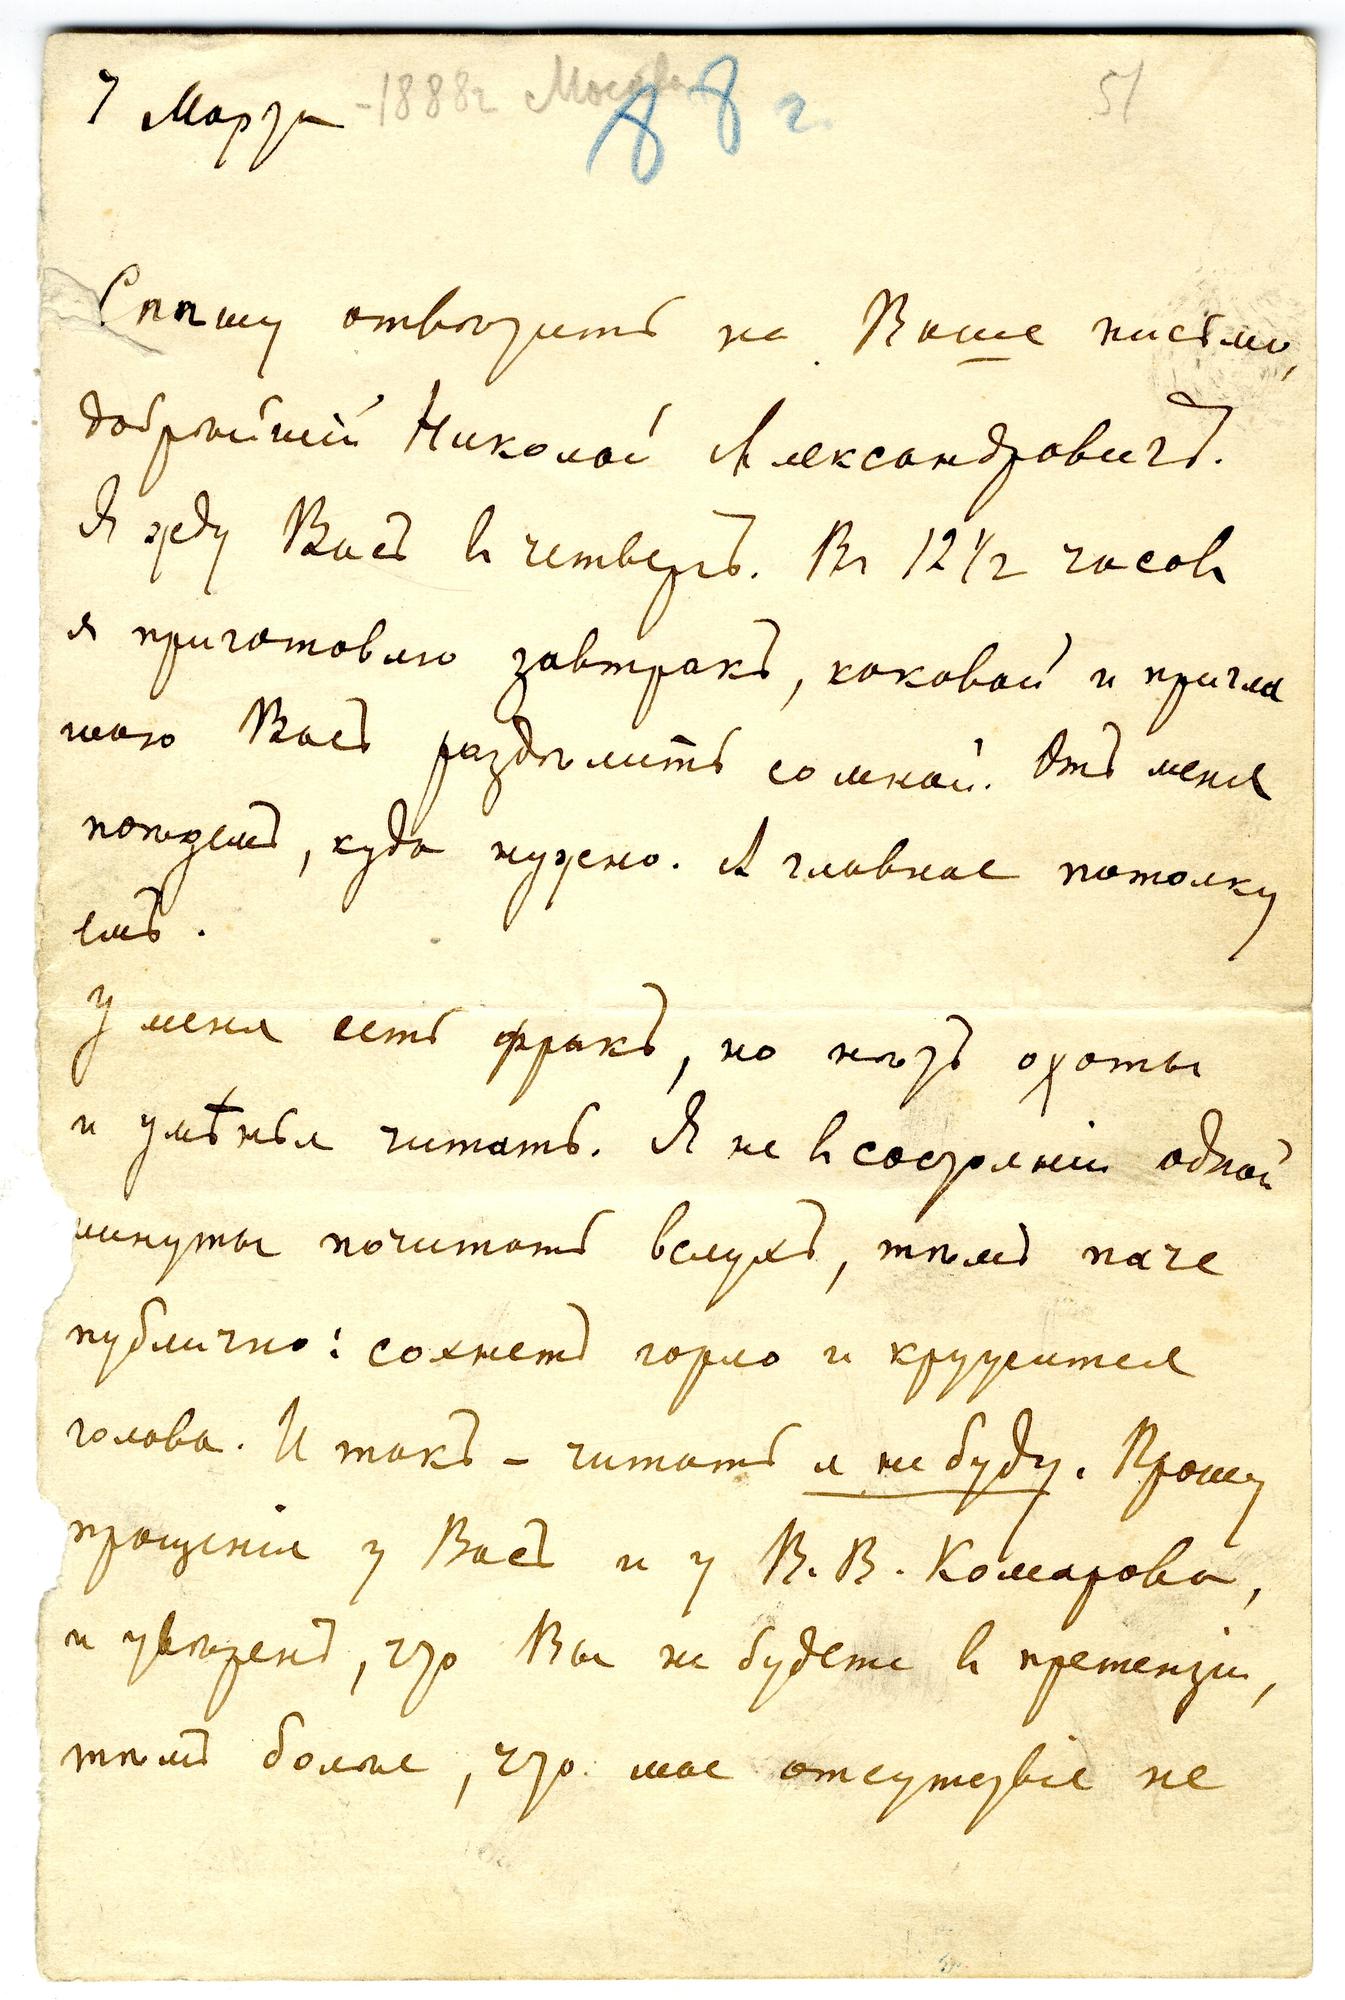 7 Марта - 1888 г Москва 88 г. 51
Спѣшу отвѣтить на Ваше письмо,
добрѣйшій Николай Александровичъ.
Я жду Васъ в четвергъ. Въ 12 1/2 часов
я приготовлю завтракъ, каковой и пригла
шаю Васъ раздѣлить со мной. Отъ меня
поѣдемъ, куда нужно. А главное потолку
емъ.
У меня есть фракъ, но нѣтъ охоты
и умѣнья читать. Я не в состояніи одной
минуты почитать вслухъ, тѣмъ паче
публично: сохнетъ горло и кружится
голова. Итакъ – читать я не буду. Прошу
прощенія у Васъ и у В. В. Комарова,
и увѣренъ, что Вы не будете в претензіи,
тѣмъ болѣе, что мое отсутствіе не